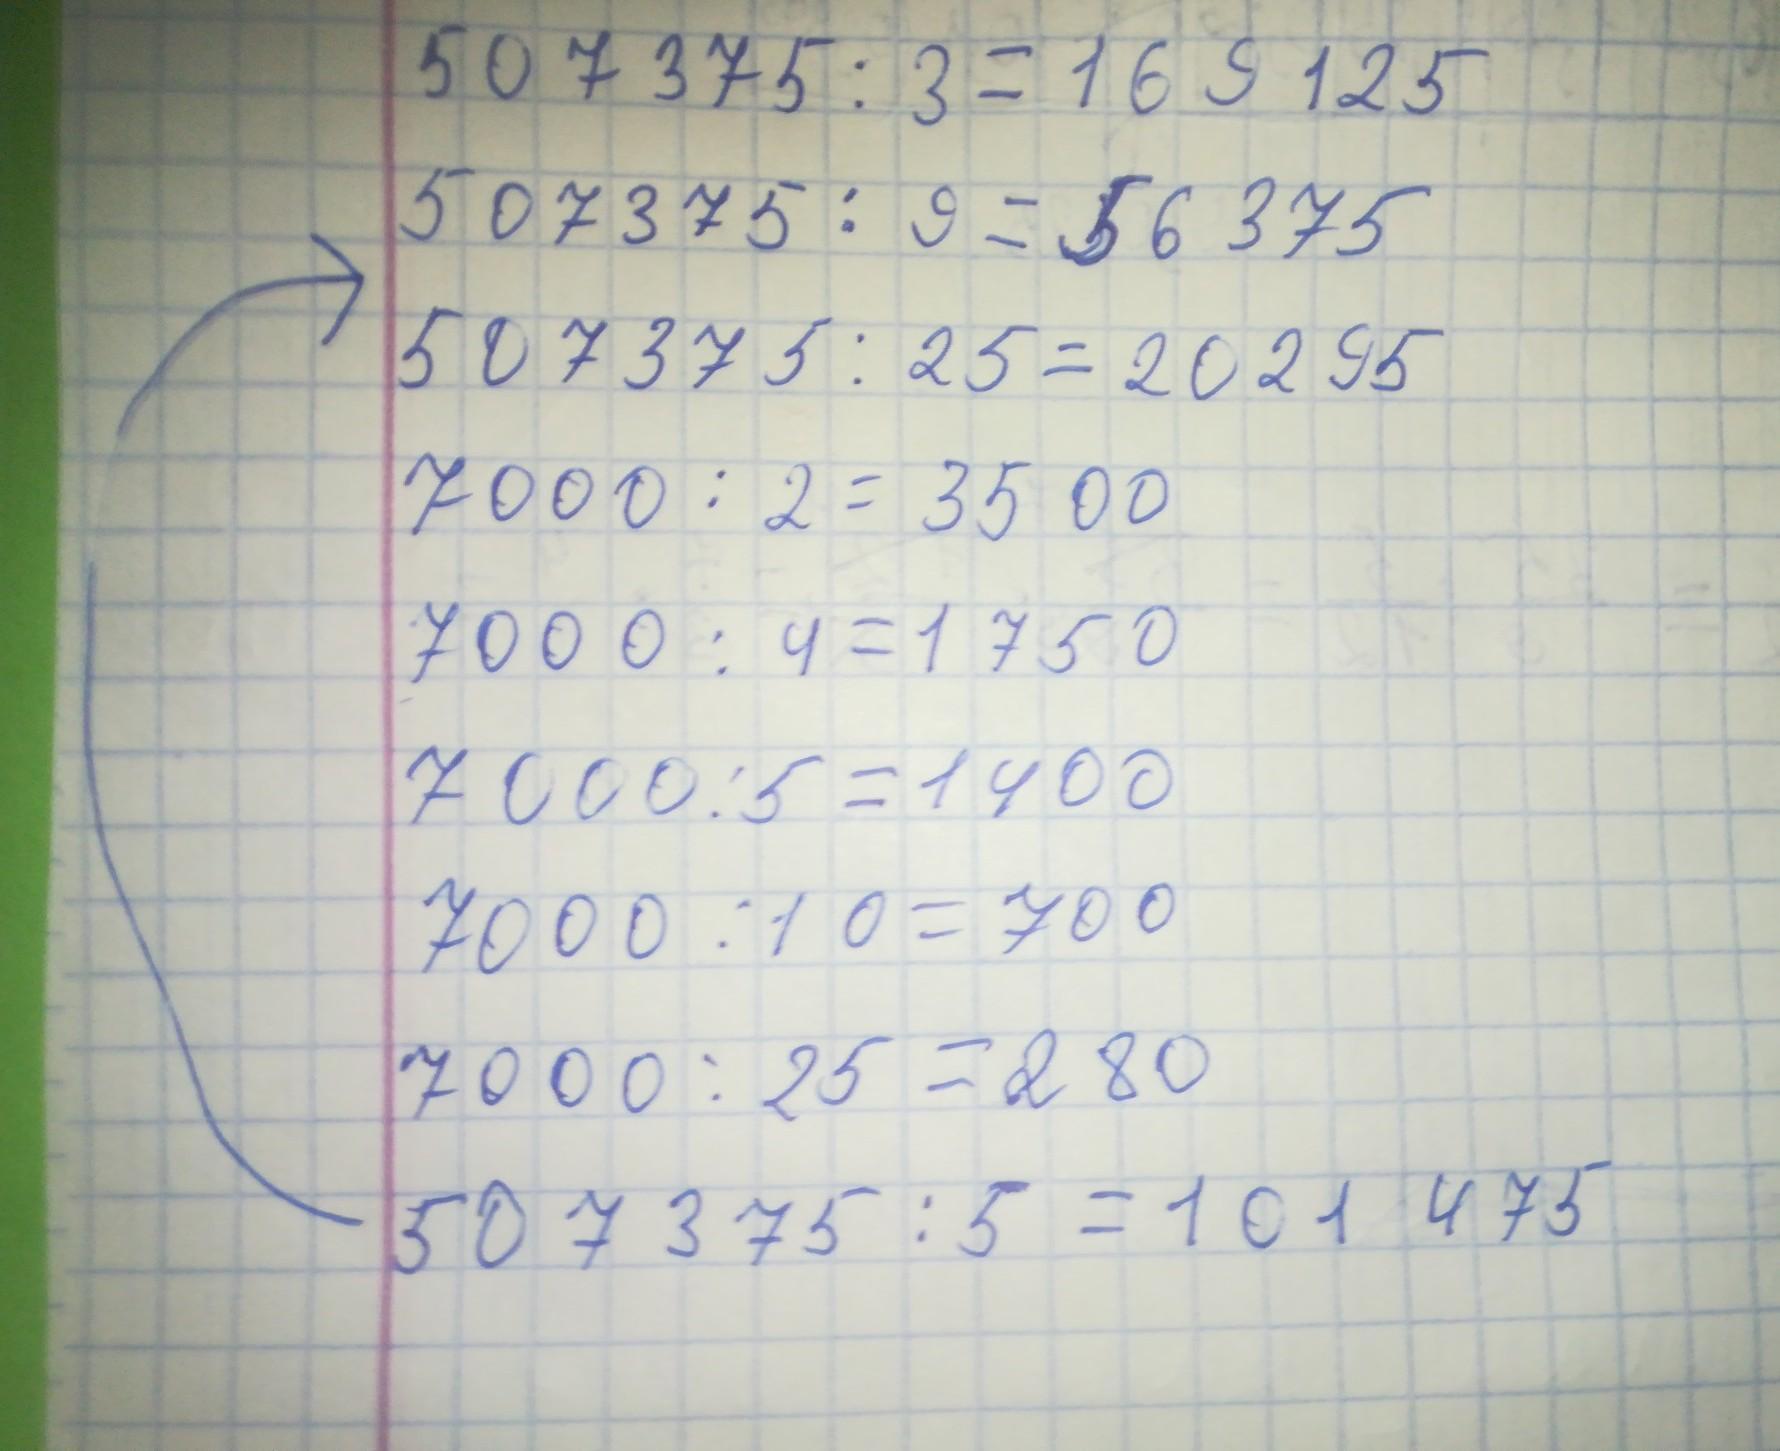 507375:3=169125
507375:9=56375
507375:25=20295
7000:2=3500
7000:4=1750
7000:5=1400
7000:10=700
7000:25=280
507375:5=101475